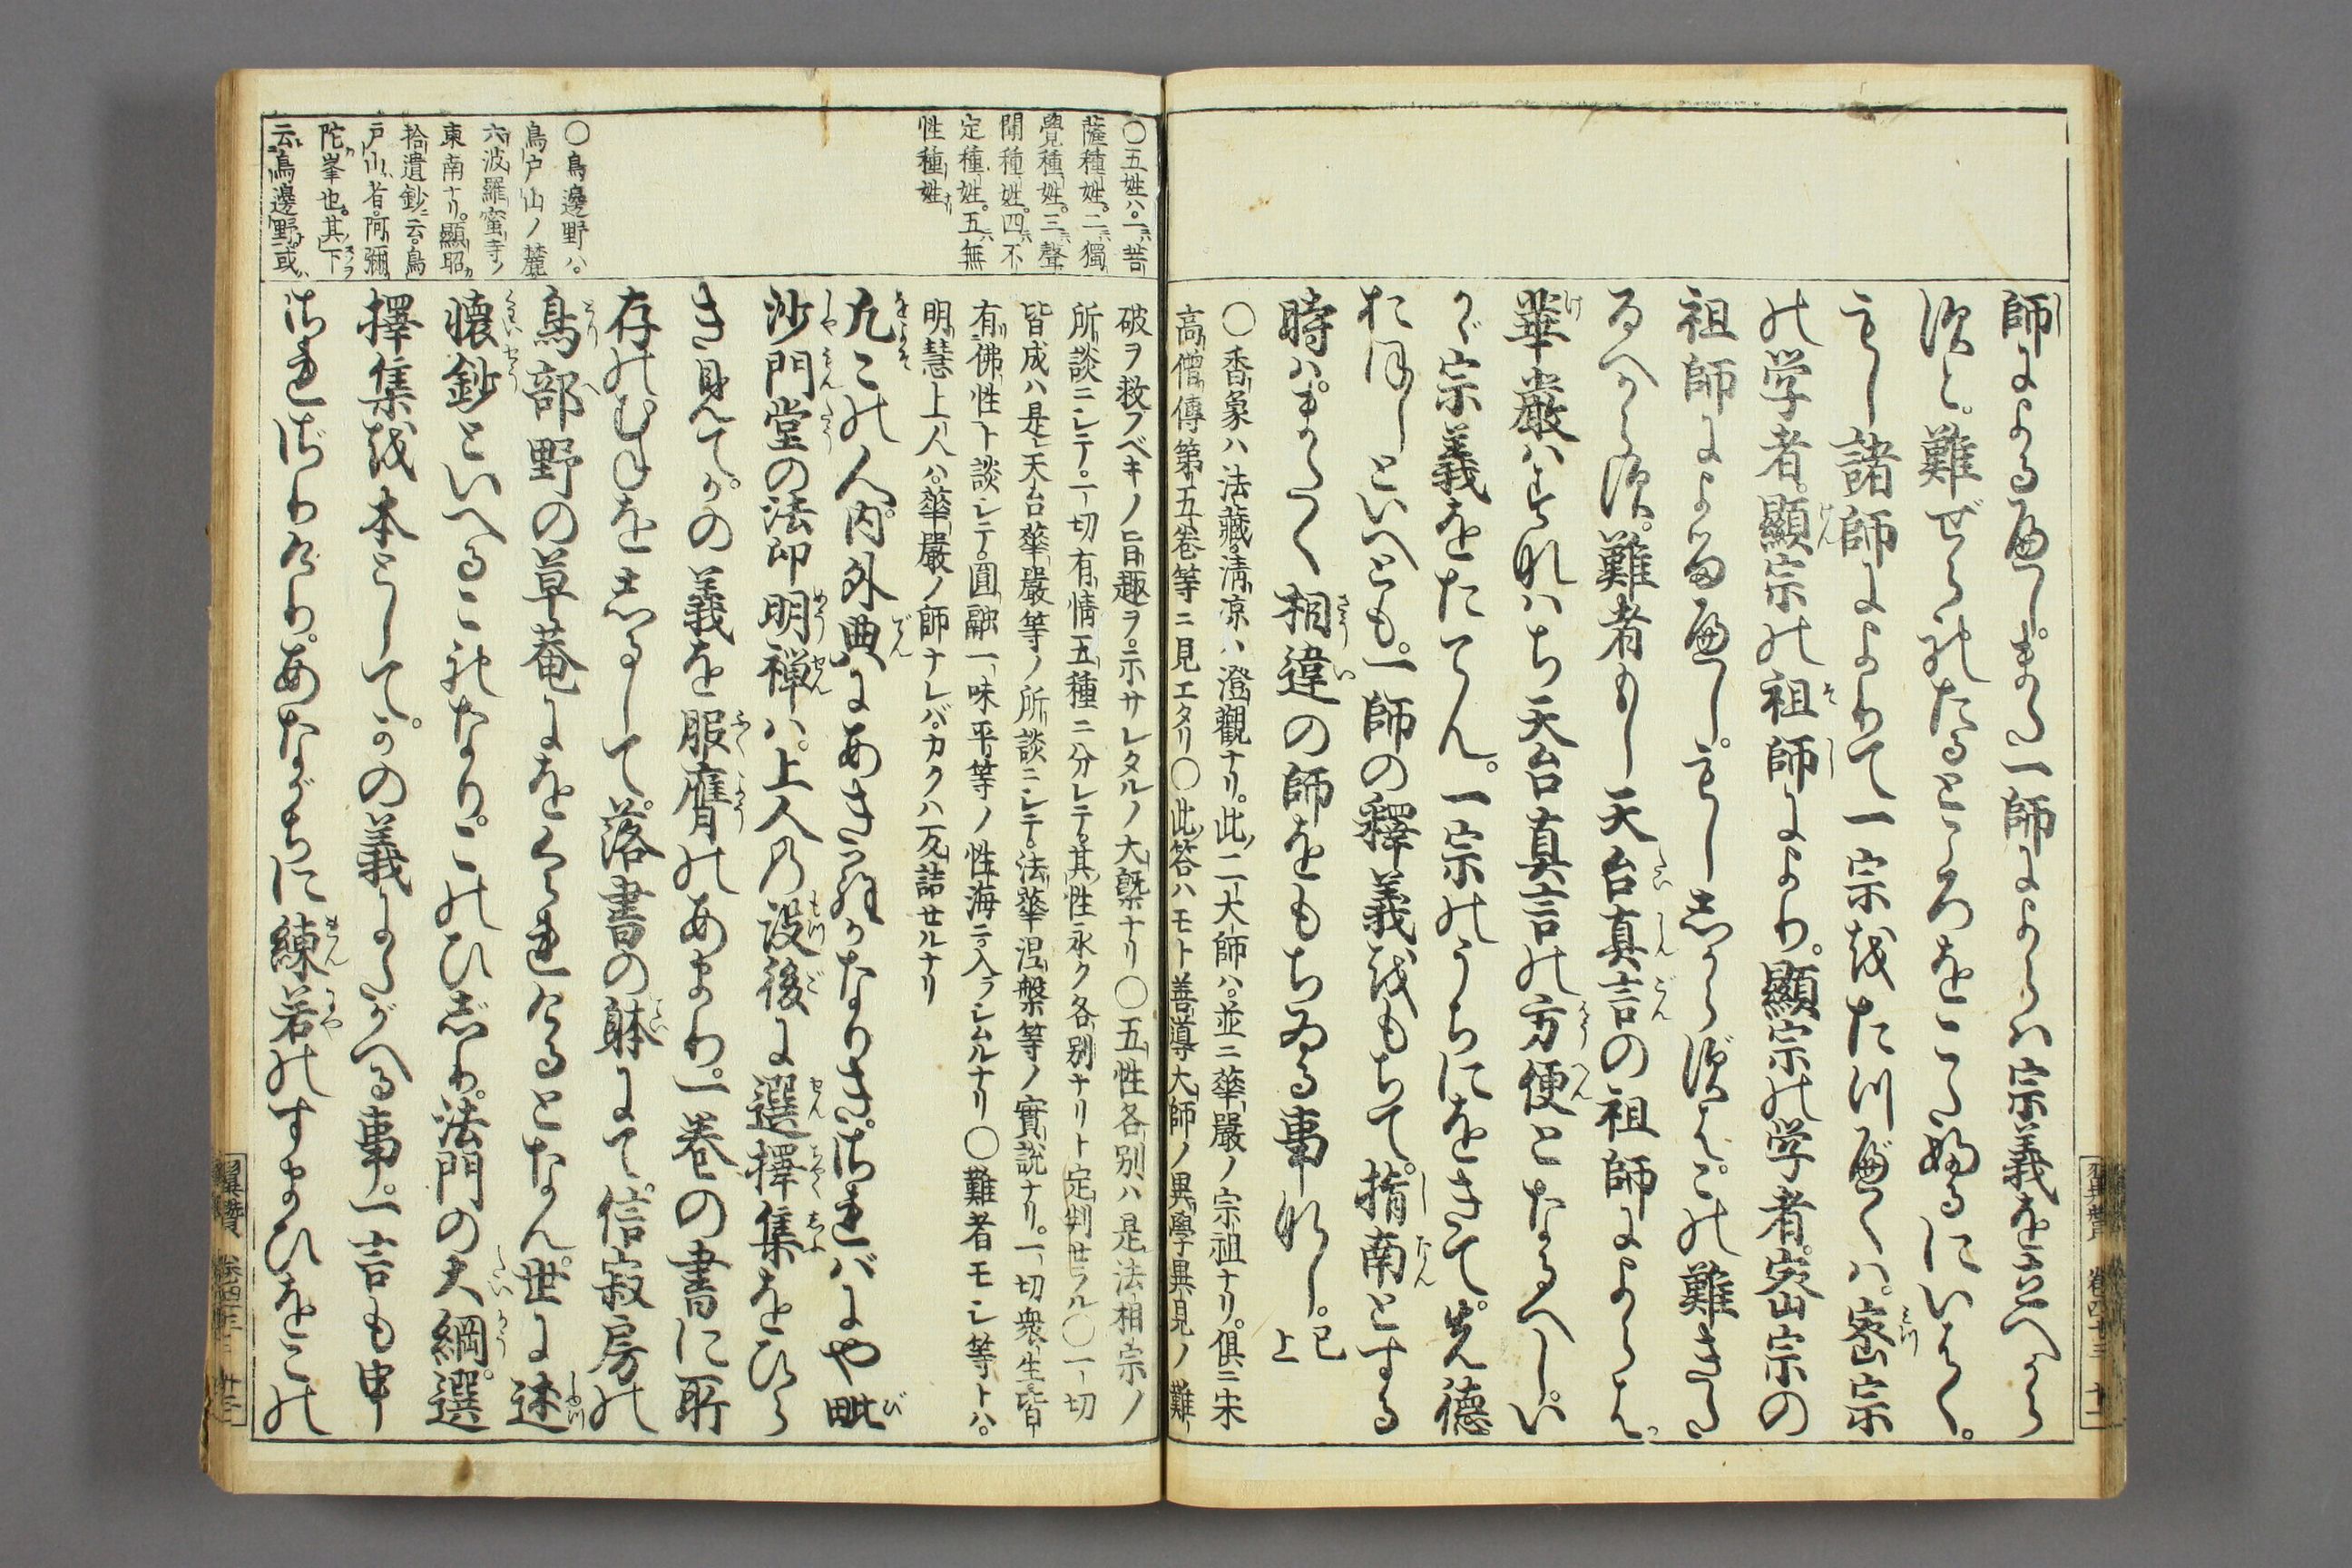 師による通しまた一師によらハ宗義を立へから
須と。難ぜられたるところをこたふるにいはく。
もし諸師によりて一宗をたつべくハ。密宗
の学者。顕宗の祖師により。顕宗の学者。密宗の
祖師による通し。もししからずは。この難きた
るへから須。難者もし天台真言の祖師によらは。
華嚴ハすなハち天台真言の方便となるへし。い
かゞ宗義をたてん。一宗のうちにをきて。先德
おほしといへとも。一師の釋義をもちて。指南とする
時ハ。まつたく相違の師をもちゐる事なし。已上
○香象ハ法藏。淸凉ハ澄觀ナリ。此二大師ハ。並ニ華嚴ノ宗祖ナリ。俱ニ宋
高僧傳第五卷等ニ見エタリ○此答ハモト善導大師ノ異學異見ノ難
○五姓ハ。一ニハ菩
薩種姓。二ニハ獨
覺種姓。三ニハ聲
聞種姓。四ニハ不
定種姓。五ニハ無
性種姓ナリ
○鳥邊野ハ。
鳥戸山ノ麓
六波羅蜜寺ノ
東南ナリ。顯昭カ
拾遺鈔ニ云。鳥
戸山ハ者。阿彌
陀峯也。其下ヲ
云鳥邊野ト。或ハ
破ヲ救フベキノ旨趣ヲ。示サレタルノ大槩ナリ○五性各別ハ是法相宗ノ
所談ニシテ。一切有情五種ニ分レテ。其性永ク各別ナリト定判セラル○一切
皆成ハ是天台華嚴等ノ所談ニシテ。法華涅槃等ノ實說ナリ。一切衆生皆
有佛性ト談シテ。圓融一味平等ノ性海ニ入ラシムルナリ○難者モシ等トハ。
明慧上人ハ。華嚴ノ師ナレバ。カクハ反詰セルナリ
凡この人。内外典にあきらかなりき。されバにや毗
沙門堂の法印明禅ハ。上人の没後に選擇集をひら
き見て。かの義を服膺のあまり。一巻の書に所
存のむねをしるして。落書の躰にて。信寂房の
鳥部野の草菴にをくられけるとなん。世に述
懐鈔といへるこれなり。このひじり。法門の大綱。選
擇集を本として。かの義にたがへる事。一言も申
されざりけり。あながちに練若のすまひをこの
翼賛 卷四十三 十二
翼賛 卷四十三 十三